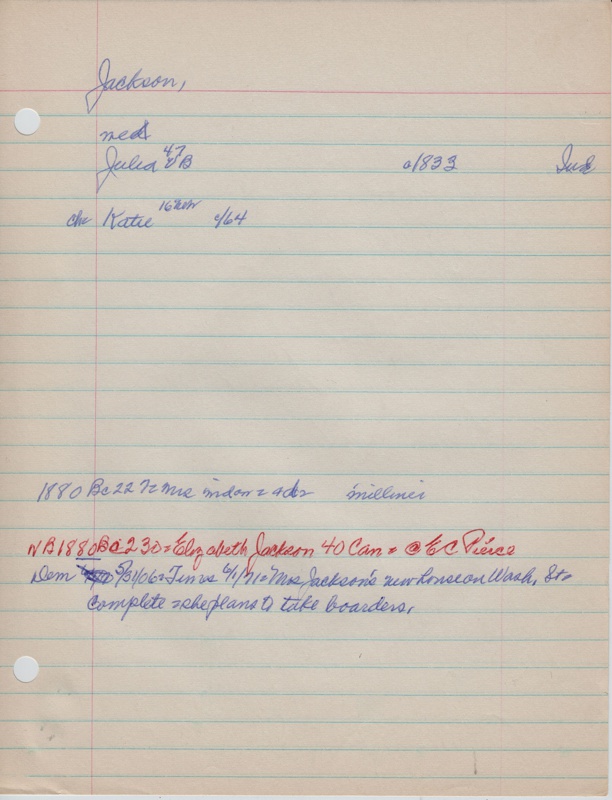 Jackson,
med
Julia 47 B c/1833 Ind
ch Katie 16 c/64
1880 Bc 227 = Mrs widow = milliner
NB 1880 Bc 230 = Elizabeth Jackson 40 Can = @ E C Pierce
Dem 5/31/06 = Times 4/1/71 = "Mrs Jackson's new house on Wash. St =
complete = she plans to take boarders.